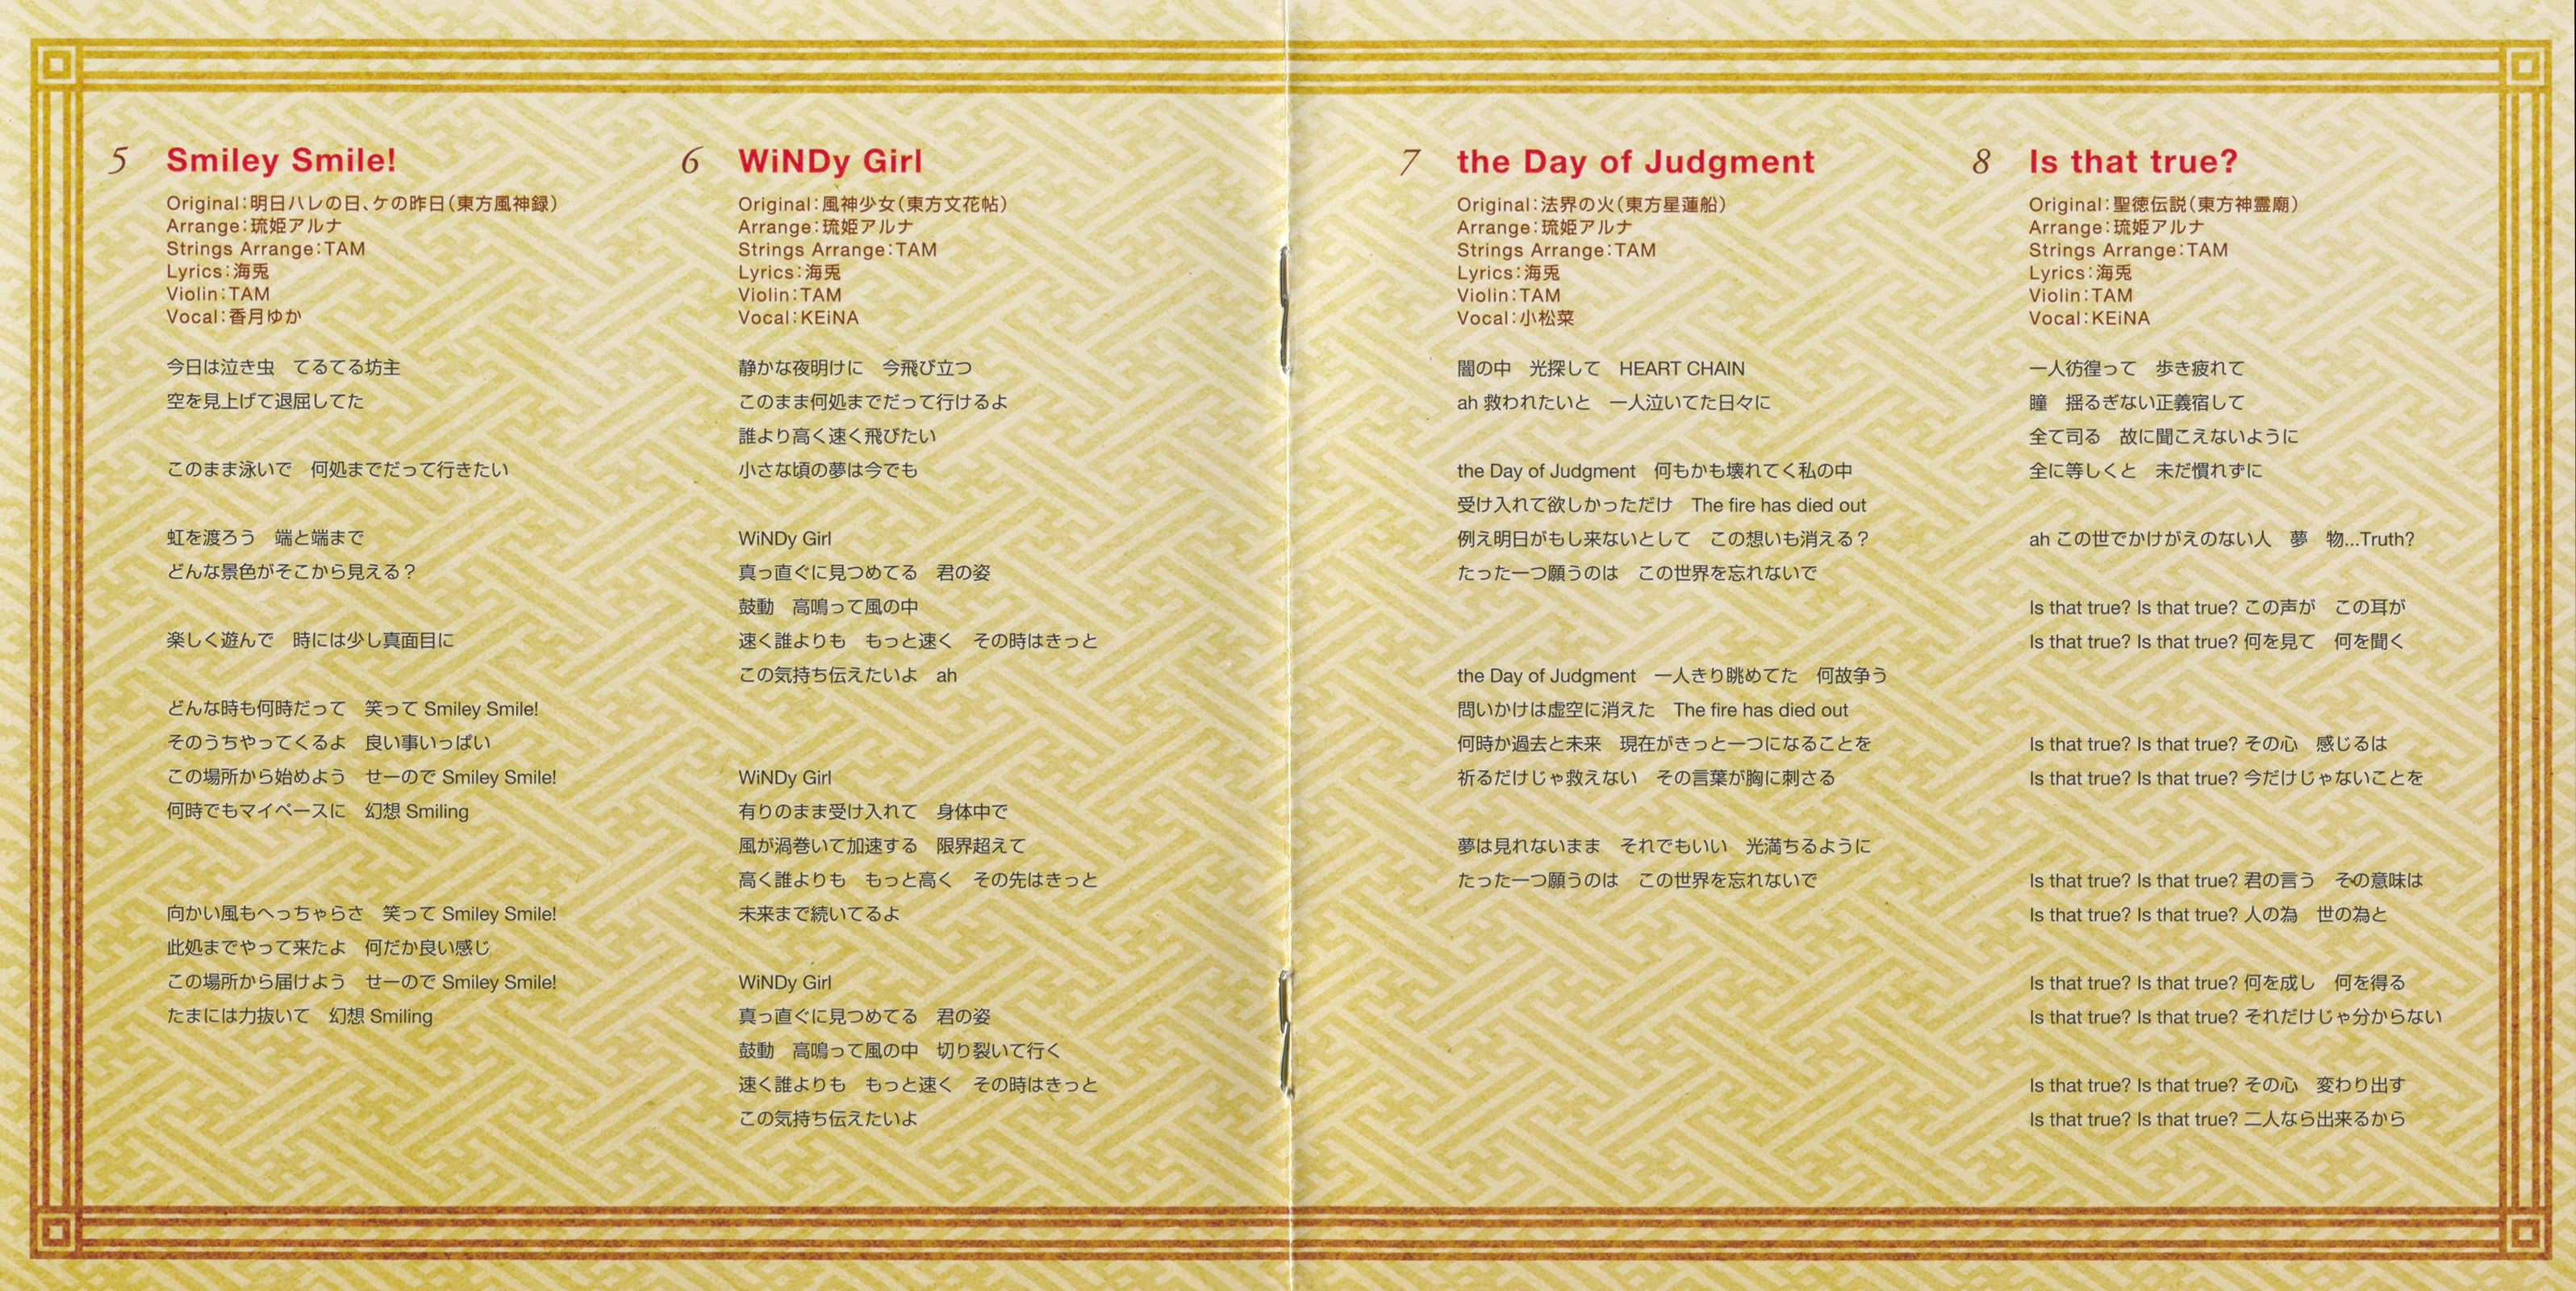 5 Smiley Smile!
Original：明日ハレの日、ケの昨日（東方風神録）
Arrange：琉姫アルナ
Strings Arrange：TAM
Lyrics：海兎
Violin：TAM
Vocal：香月ゆか
今日は泣き虫　てるてる坊主
空を見上げて退屈してた
このまま泳いで　何処までだって行きたい
虹を渡ろう　端と端まで
どんな景色がそこから見える？
楽しく遊んで　時には少し真面目に
どんな時も何時だって　笑って Smiley Smile!
そのうちやってくるよ　良い事いっぱい
この場所から始めよう　せーので Smiley Smile!
何時でもマイペースに　幻想 Smiling
向かい風もへっちゃらさ　笑って Smiley Smile!
此処までやって来たよ　何だか良い感じ
この場所から届けよう　せーので Smiley Smile!
たまには力抜いて　幻想 Smiling
6 WiNDy Girl
Original：風神少女（東方文花帖）
Arrange：琉姫アルナ
Strings Arrange：TAM
Lyrics：海兎
Violin：TAM
Vocal：KEiNA
静かな夜明けに　今飛び立つ
このまま何処までだって行けるよ
誰より高く速く飛びたい
小さな頃の夢は今でも
WiNDy Girl
真っ直ぐに見つめてる　君の姿
鼓動　高鳴って風の中
速く誰よりも　もっと速く　その時はきっと
この気持ち伝えたいよ　ah
WiNDy Girl
有りのまま受け入れて　身体中で
風が渦巻いて加速する　限界超えて
高く誰よりも　もっと高く　その先はきっと
未来まで続いてるよ
WiNDy Girl
真っ直ぐに見つめてる　君の姿
鼓動　高鳴って風の中　切り裂いて行く
速く誰よりも　もっと速く　その時はきっと
この気持ち伝えたいよ
7 the Day of Judgment
Original：法界の火（東方星蓮船）
Arrange：琉姫アルナ
Strings Arrange：TAM
Lyrics：海兎
Violin：TAM
Vocal：小松菜
闇の中　光探して　HEART CHAIN
ah 救われたいと　一人泣いてた日々に
the Day of Judgment　何もかも壊れてく私の中
受け入れて欲しかっただけ　The fire has died out
例え明日がもし来ないとして　この想いも消える？
たった一つ願うのは　この世界を忘れないで
the Day of Judgment　一人きり眺めてた　何故争う
問いかけは虚空に消えた　The fire has died out
何時か過去と未来　現在がきっと一つになることを
祈るだけじゃ救えない　その言葉が胸に刺さる
夢は見れないまま　それでもいい　光満ちるように
たった一つ願うのは　この世界を忘れないで
8 Is that true?
Original：聖徳伝説（東方神霊廟）
Arrange：琉姫アルナ
Strings Arrange：TAM
Lyrics：海兎
Violin：TAM
Vocal：KEiNA
一人彷徨って　歩き疲れて
瞳　揺るぎない正義宿して
全て司る　故に聞こえないように
全に等しくと　未だ慣れずに
ah この世でかけがえのない人　夢　物...Truth?
Is that true? Is that true? この声が　この耳が
Is that true? Is that true? 何を見て　何を聞く
Is that true? Is that true? その心　感じるは
Is that true? Is that true? 今だけじゃないことを
Is that true? Is that true? 君の言う　その意味は
Is that true? Is that true? 人の為　世の為と
Is that true? Is that true? 何を成し　何を得る
Is that true? Is that true? それだけじゃ分からない
Is that true? Is that true? その心　変わり出す
Is that true? Is that true? 二人なら出来るから